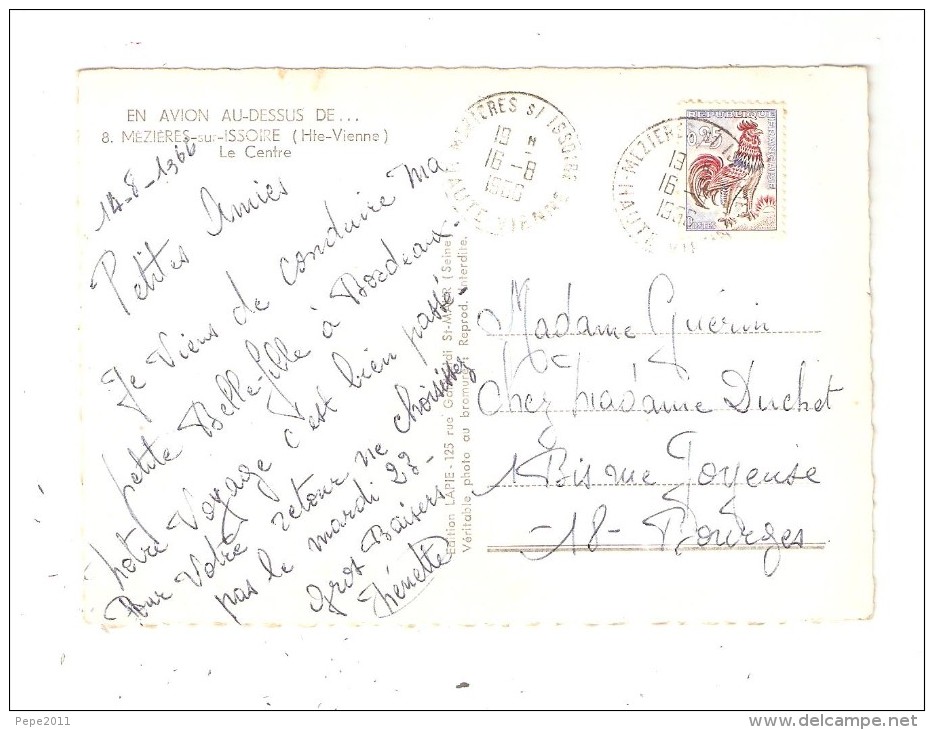 EN AVION AU-DESSUS DE...
8. MÉZIÈRES-sur-ISSOIRE (Hte-Vienne)
Le Centre
14-8-1966
Petites Amies
Je Viens de conduire Ma
petite Belle-fille à Bordeaux.
notre Voyage c'est bien passé.
Pour Votre retour ne choisissez
pas le mardi 23-
Gros Baisers
Édition LAPIE - 125 rue St-MAUR (Seine)
Véritable photo au bromure. Reprod. interdite.
MÉZIÈRES S/ ISSOIRE
19 H
16 -8
1966
HAUTE VIENNE
REPUBLIQUE
FRANÇAISE
0,25
HAUTE MÉZIÈRES
19
16
1966
Madame Guérin
Chez Madame Duchet
1 Bis rue Joyeuse
-18- Bourges
Pepe2011
www.delcampe.net